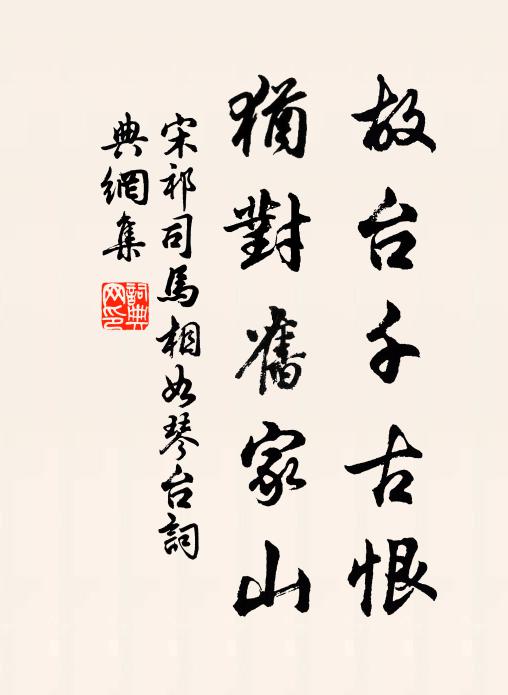 故台千古恨
猶對舊家山
宋祁司馬相如琴台詞
典網集
詞典
网印